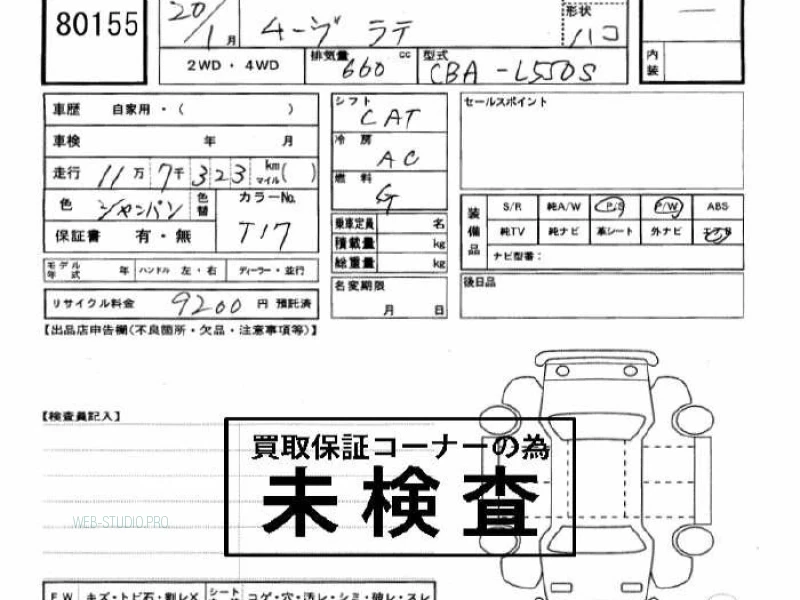 80155
20/1月 ムーヴ ラテ 形状 ハコ
2WD・4WD 排気量 660 cc 型式 CBA-L550S 内装
車歴 自家用・( )
車検 年 月
走行 11万 7千 323 km マイル ( )
色 シャンパン 色替 カラーNo. T17
保証書 有・無
モデル年式 年 ハンドル 左・右 ディーラー・並行
リサイクル料金 9200 円 預託済
シフト CAT
冷房 AC
燃料 G
乗車定員 名
積載量 kg
総重量 kg
名変期限 月 日
セールスポイント
装備品 S/R 純A/W P/S P/W ABS
純TV 純ナビ 革シート 外ナビ エアB
ナビ型番:
後日品
【出品店申告欄(不良箇所・欠品・注意事項等)】
【検査員記入】
買取保証コーナーの為
未検査
WEB-STUDIO.PRO
FW キズ・トビ石・割レX シート コゲ・穴・汚レ・シミ・破レ・スレ